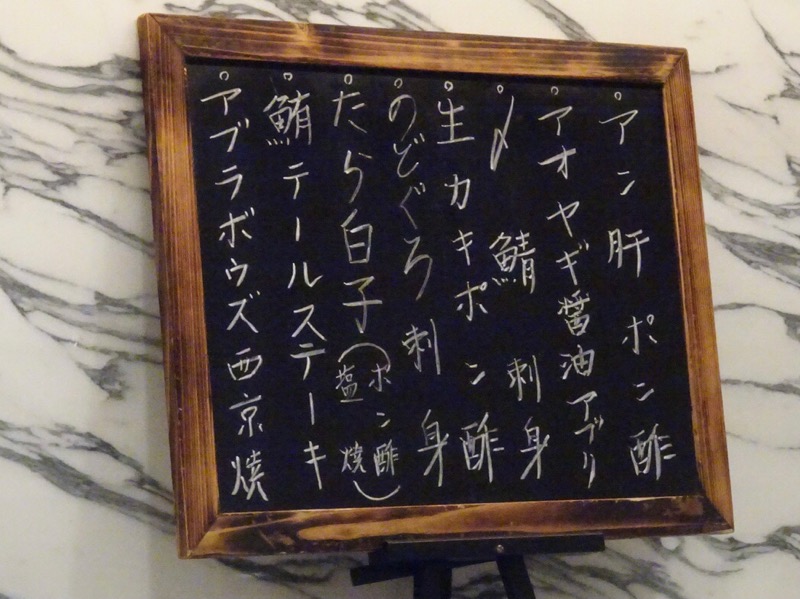 °アン肝ポン酢
°アオヤギ醤油アブリ
°〆鯖刺身
°生カキポン酢
°のどぐろ刺身
°たら白子(ポン酢 塩焼)
°鮪テールステーキ
°アブラボウズ西京焼